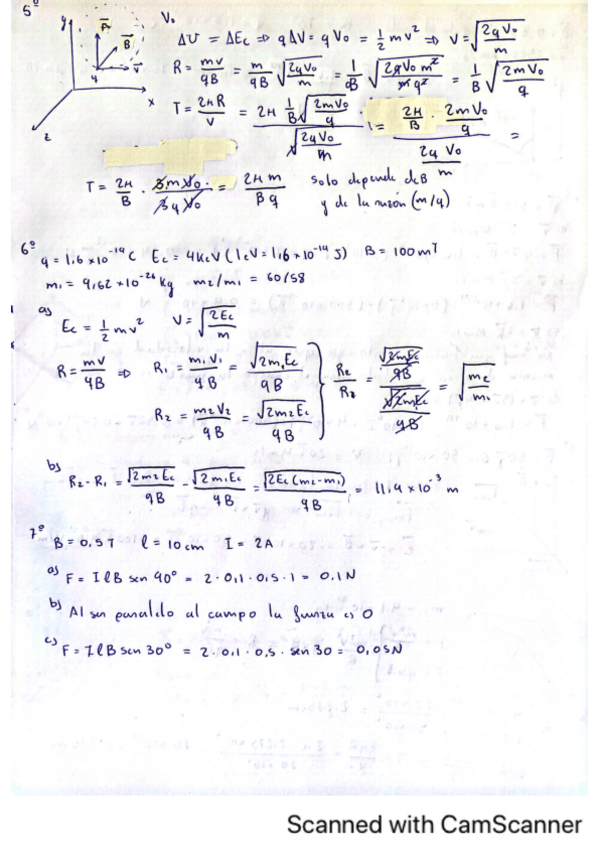 5º
y
x
z
V₀
ΔU = ΔEc ⇒ qΔV = qV₀ = 1/2 mv² ⇒ V = √(2qV₀/m)
R = mv/qB = m/qB √(2qV₀/m) = 1/B √(2qV₀m²/mq²) = 1/B √(2mV₀/q)
T = 2πR/V = 2π 1/B √(2mV₀/q) / √(2qV₀/m)
T = 2π/B · 2mV₀/2qV₀ = 2πm/Bq solo depende de B
y de la razón (m/q)
6º
q = 1,6 x 10⁻¹⁹ C Ec = 4KeV (1eV = 1,6 x 10⁻¹⁹ J) B = 100 mT
m₁ = 9,62 x 10⁻²⁶ kg m₂/m₁ = 60/58
a)
Ec = 1/2 mv² V = √(2Ec/m)
R = mv/qB ⇒ R₁ = m₁V₁/qB = √(2m₁Ec)/qB
R₂ = m₂V₂/qB = √(2m₂Ec)/qB
= √(m₂/m₁)
b)
R₂ - R₁ = √(2m₂Ec)/qB - √(2m₁Ec)/qB = √(2Ec(m₂-m₁))/qB = 11,4 x 10⁻³ m
7º
B = 0,5T l = 10 cm I = 2A
a) F = I l B sen 90º = 2 · 0,1 · 0,5 · 1 = 0,1 N
b) Al ser paralelo al campo la fuerza es 0
c) F = I l B sen 30º = 2 · 0,1 · 0,5 · sen 30 = 0,05N
Scanned with CamScanner